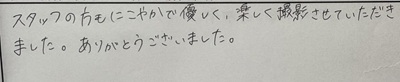 スタッフの方もにこやかで優しく、楽しく撮影させていただき
ました。ありがとうございました。